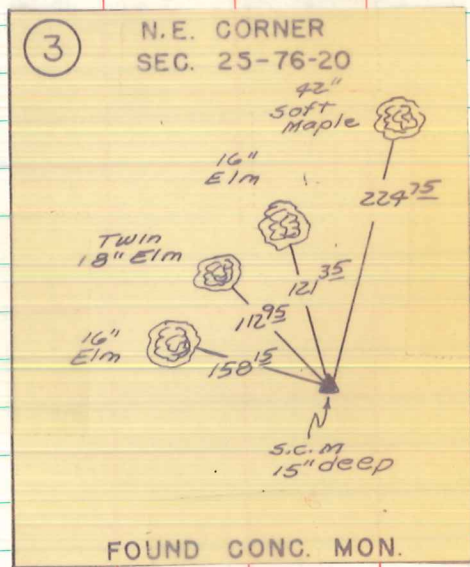 3
N.E. CORNER
SEC. 25-76-20
42"
Soft
Maple
16"
Elm
224 75
Twin
18" Elm
121 35
112 95
16"
Elm
158 15
S.C.M
15" deep
FOUND CONC. MON.